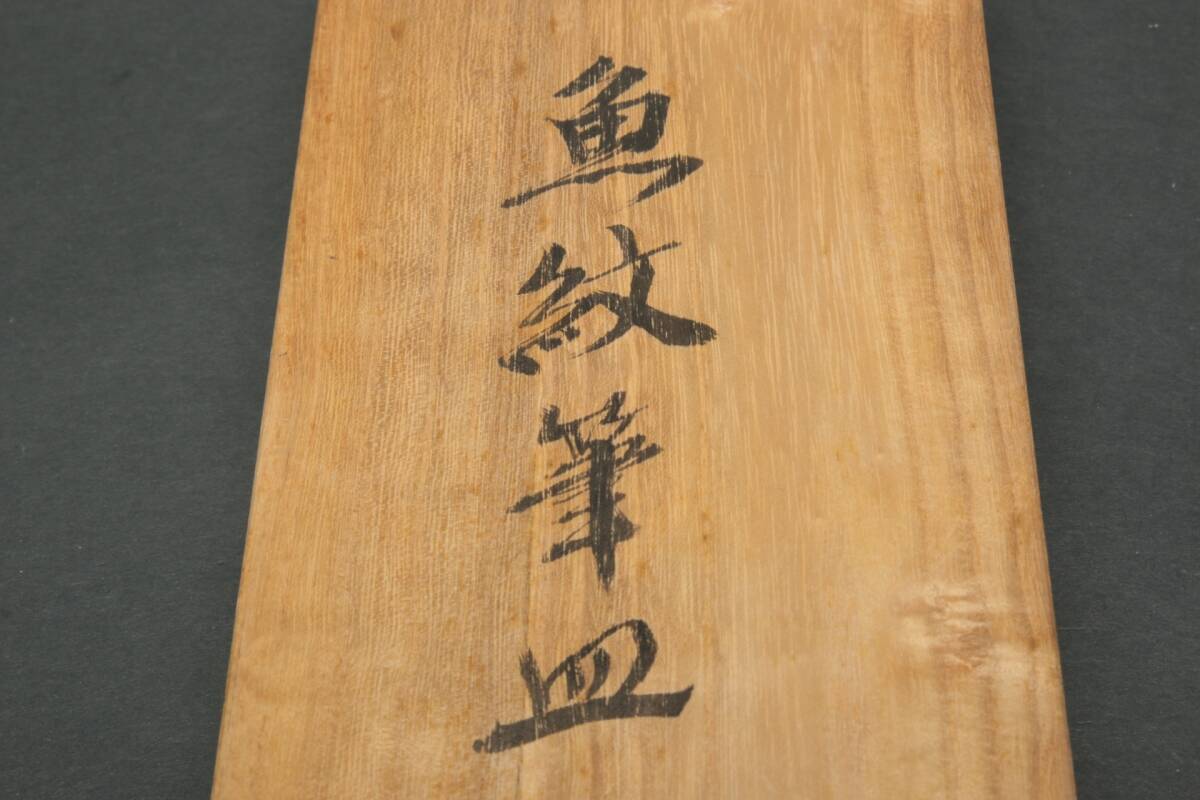 魚紋筆皿